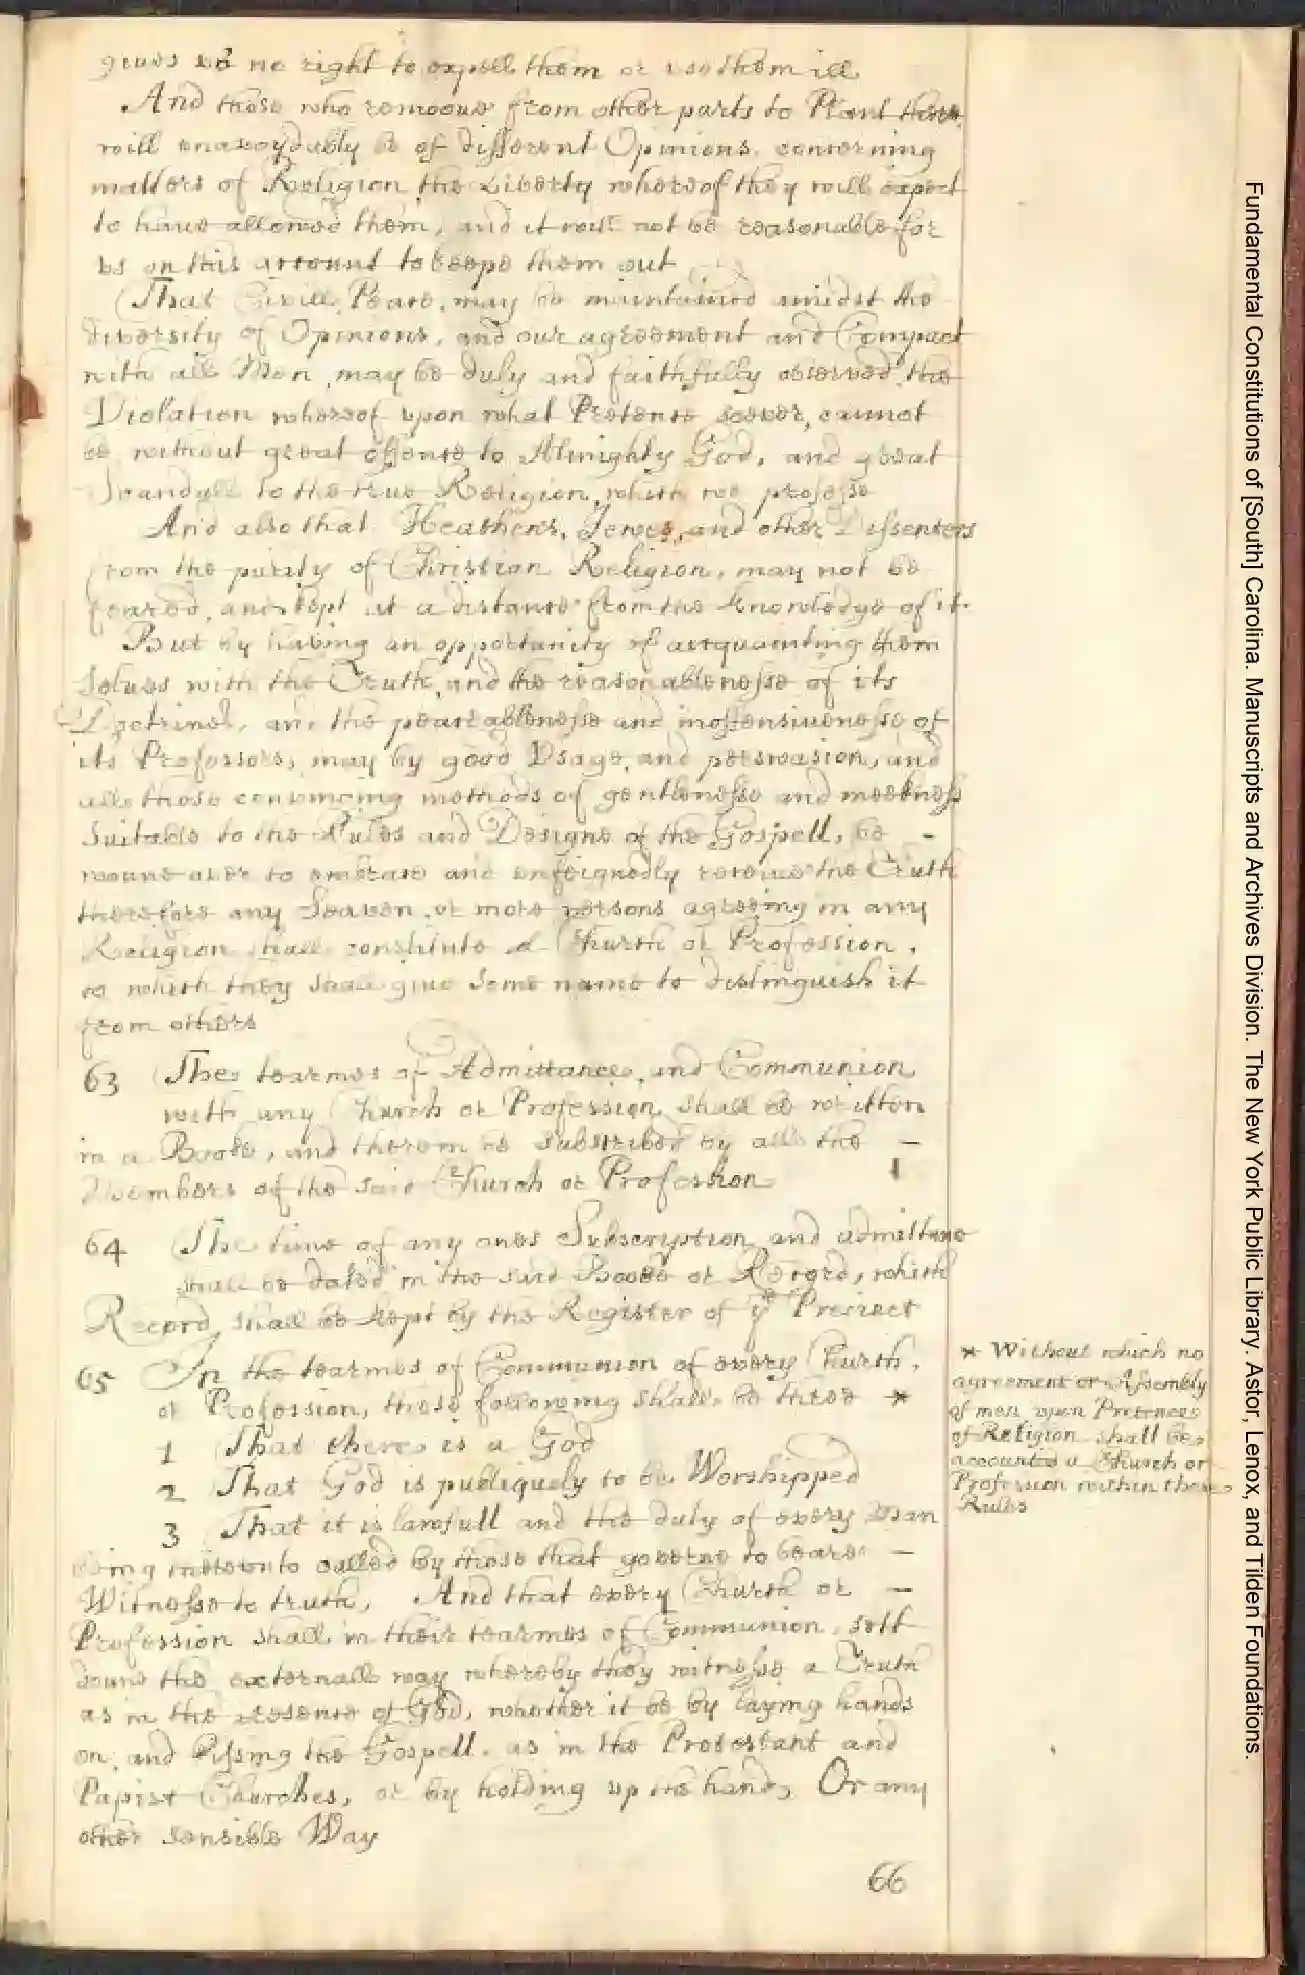 giues us no right to expell them or use them ill
And those who remooue from other parts to Plant there
will unavoydably be of different Opinions concerning
matters of Religion the Liberty whereof they will expect
to haue allowed them, and it will not be reasonable for
us on this account to keepe them out
That Civill Peace may be maintained amidst the
diversity of Opinions, and our agreement and Compact
with all Men may be duly and faithfully observed, the
Violation whereof upon what Pretence soever, cannot
be without great offence to Almighty God, and great
Scandall to the true Religion, which we professe
And also that Heathens, Jewes, and other Dissenters
from the purity of Christian Religion, may not be
feared, and kept at a distance from the knowledge of it.
But by having an opportunity of acquainting them
selves with the Truth and the reasonablenesse of its
Doctrines, and the peaceablenesse and inoffensivenesse of
its Professors, may by good Usage, and perswasion, and
all those convincing methods of gentlenesse and meeknesse
Suitable to the Rules and Designe of the Gospell, be -
wound over to embrace and unfeignedly receiue the Truth
therefore any Seaven or more persons agreeing in any
Religion shall constitute a Church or Profession,
to which they shall giue Some name to distinguish it
from others
63 The tearmes of Admittance, and Communion
with any Church or Profession shall be written
in a Booke, and therein be Subscribed by all the -
Members of the said Church or Profession
64 The time of any ones Subscription and admittance
shall be dated in the said Booke or Record, which
Record shall be kept by the Register of ye Precinct
65 In the tearmes of Communion of every Church,
or Profession, these following shall be three *
1 That there is a God
2 That God is publiquely to be Worshipped
3 That it is lawfull and the duty of every Man
being thereunto called by those that governe to beare -
Witnesse to truth, And that every Church or -
Profession shall in their tearmes of Communion, sett
downe the externall way whereby they witnesse a Truth
as in the presence of God, whether it be by laying hands
on, and kissing the Gospell, as in the Protestant and
Papist Churches, or by holding up the hand, Or any
other Sensible Way
66
* Without which no
agreement or Assembly
of men upon Pretences
of Religion shall be
accounted a Church or
Profession within these
Rules
Fundamental Constitutions of [South] Carolina. Manuscripts and Archives Division. The New York Public Library. Astor, Lenox, and Tilden Foundations.